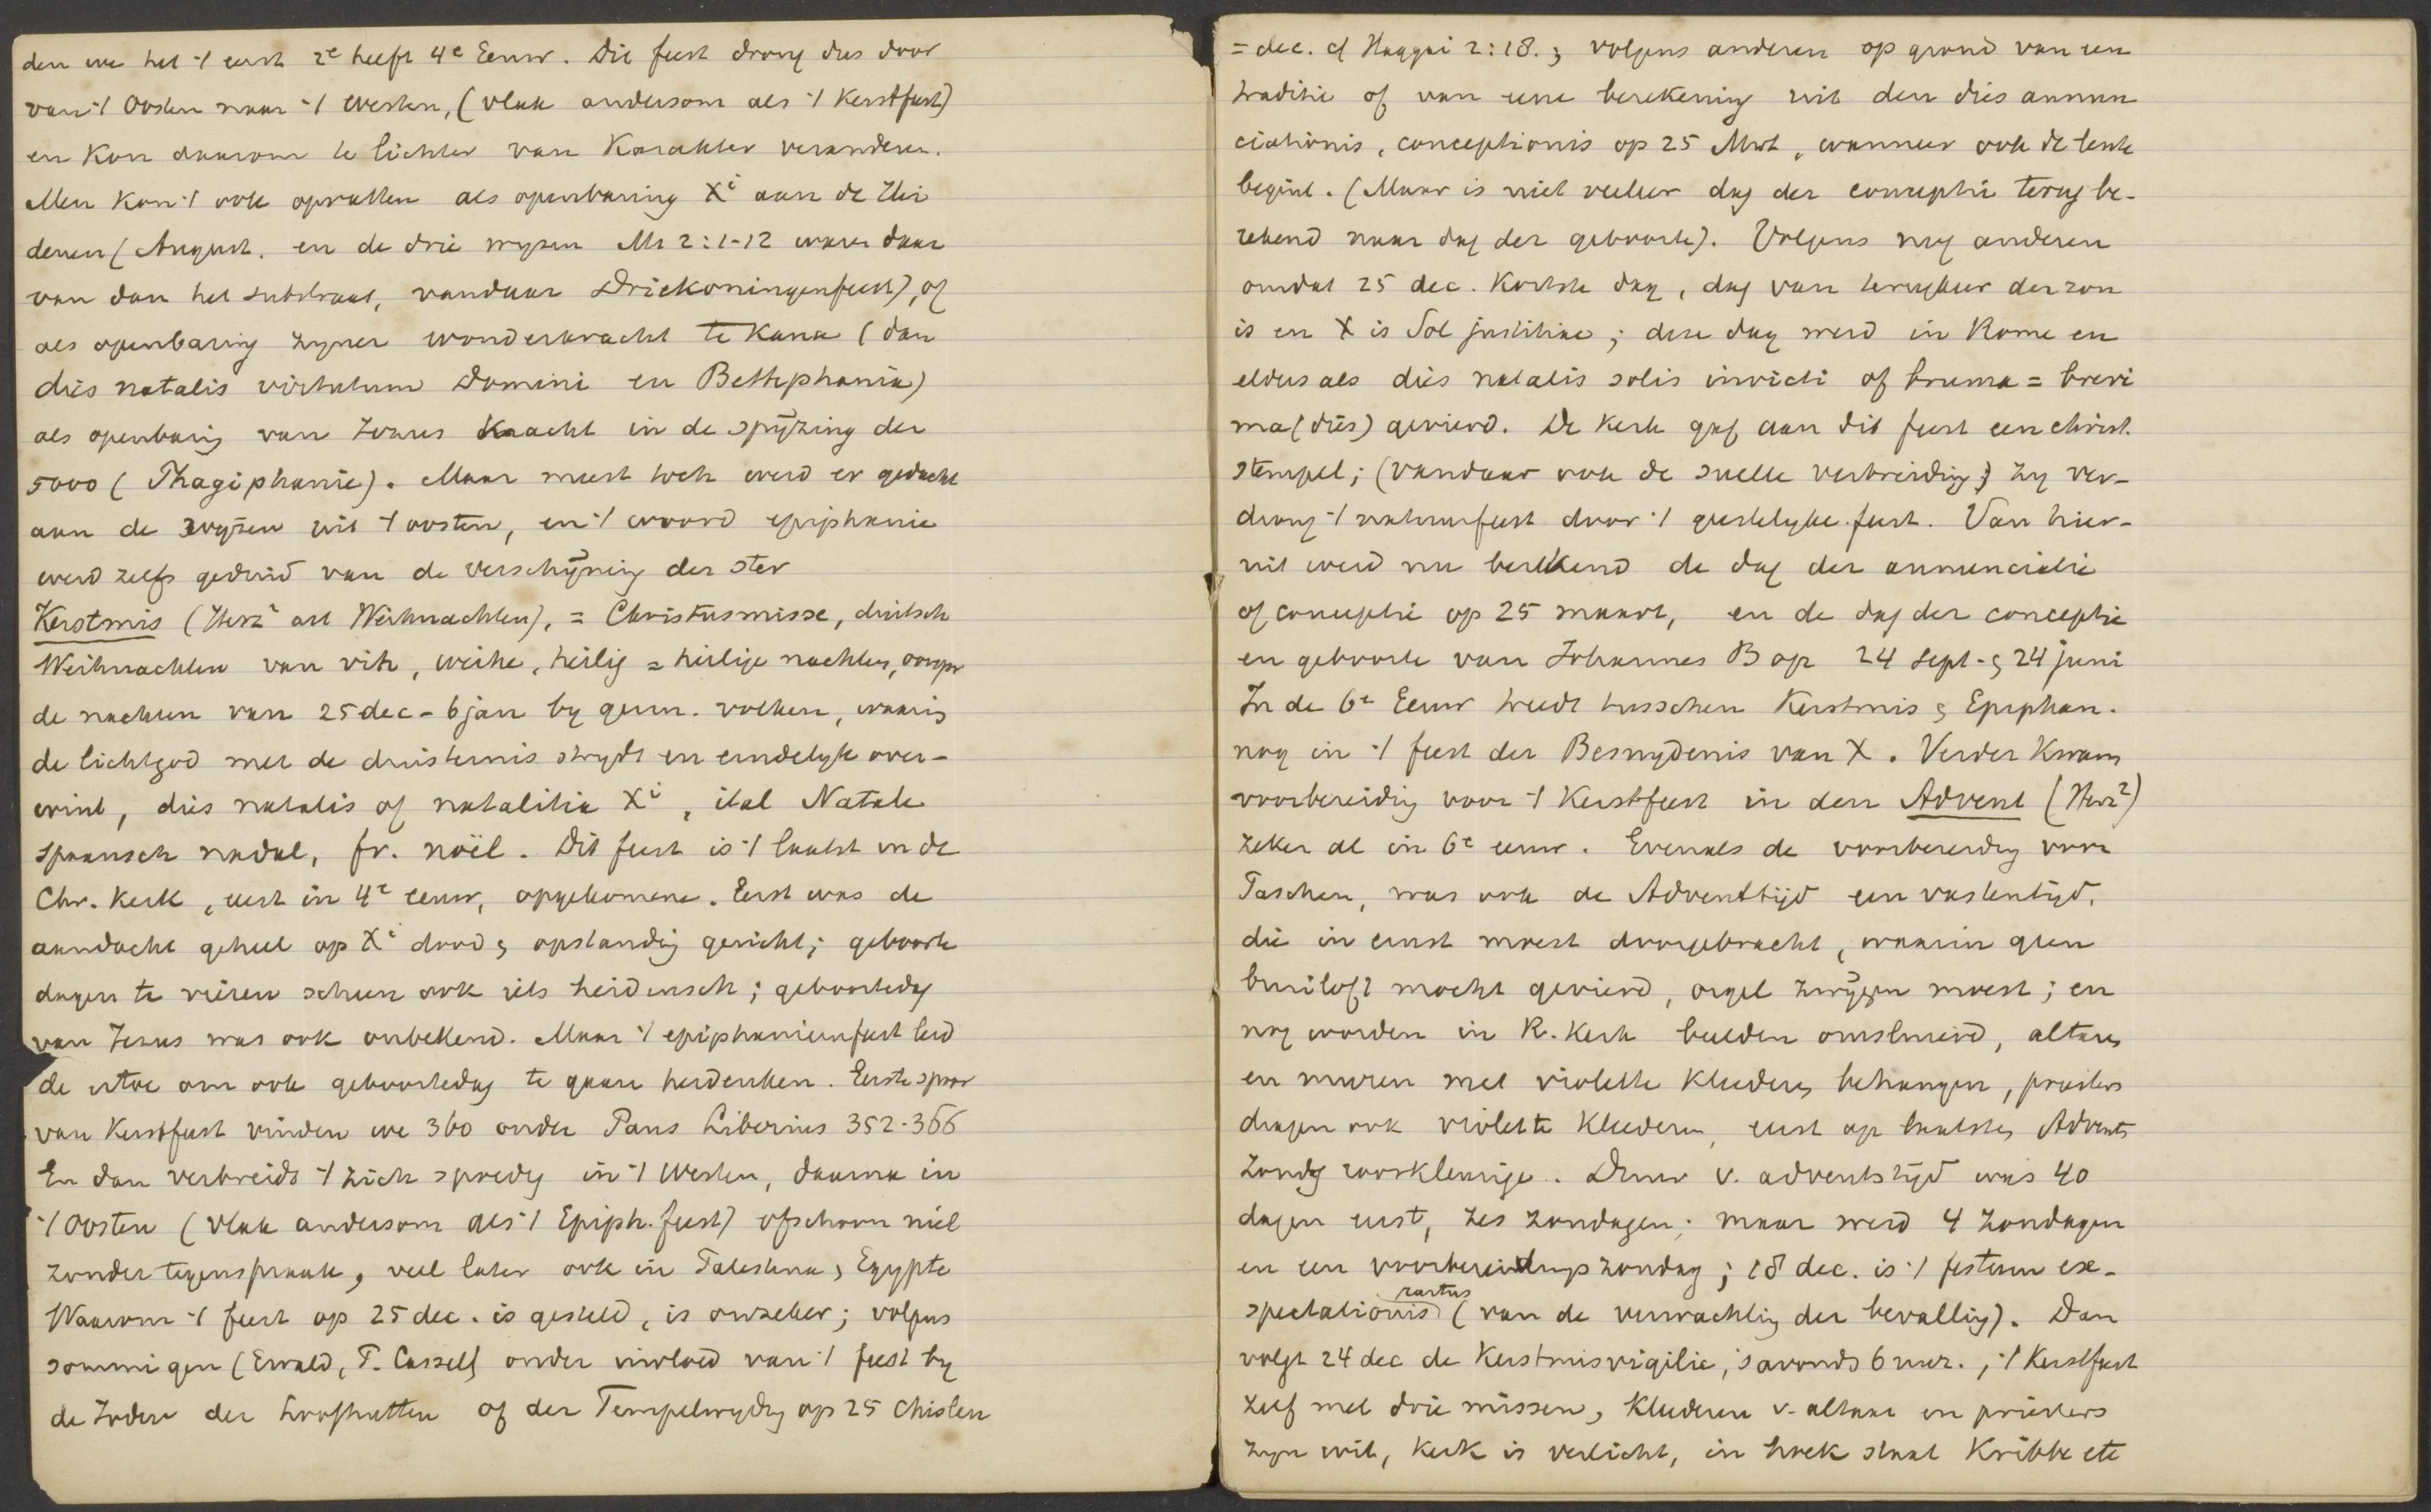 den we het 't eerst 2e helft 4e Eeuw. Dit feest drong dus door
van 't Oosten naar 't Westen, (vlak andersom als 't Kerstfeest)
en kon daarom te lichter van Karakter veranderen.
Men kon 't ook opvatten als openbaring Xi aan de Hei
denen (August. en de drie wyzen Mt 2:1-12 waren daar
van dan het substraat, vandaar Driekoningenfeest), of
als openbaring zyner wonderkracht te Kana (dan
dies natalis virtutum Domini en Bethphania)
als openbarig van Jezus Kracht in de spyzing der
5000 (Phagiphanie). Maar meest toch werd er gedacht
aan de wyzen uit 't oosten, en 't woord epiphanie
werd zelfs geduid van de verschyning der ster
Kerstmis (Herz² art Weihnachten), = Christusmisse, duitsch
Weihnachten van vih, weihe, heilig = heilige nachten, oorspr
de nachten van 25 dec - 6 jan by germ. volken, waarin
de lichtgod met de duisternis strydt en eindelyk over-
wint, dies natalis of natalitia Xi, ital Natale
spaansch nadal, fr. noël. Dit feest is 't laatst in de
Chr. Kerk, eerst in 4e eeuw, opgekomen. Eerst was de
aandacht geheel op Xi dood & opstandig gericht; geboorte
dagen te vieren scheen ook iets heidensch; geboortedag
van Jezus was ook onbekend. Maar 't epiphaniënfeest leid
de ertoe om ook geboortedag te gaan herdenken. Eerste spoor
van Kerstfeest vinden we 360 onder Paus Liberius 352-366
En dan verbreidt 't zich spoedig in 't Westen, daarna in
't Oosten (vlak andersom als 't Epiph. feest) ofschoon niet
zonder tegenspraak, veel later ook in Palestina & Egypte
Waarom 't feest op 25 dec. is gesteld, is onzeker; volgens
sommigen (Ewald, P. Cassel) onder invloed van 't feest by
de Joden der Loofhutten of der Tempelwyding op 25 Chisleu
= dec. cf Haggai 2:18.; volgens anderen op grond van een
traditie of van eene berekening uit den dies annun
ciationis, conceptionis op 25 Mrt, wanneer ook de lente
begint. (Maar is niet veeleer dag der conceptie terug be-
rekend naar dag der geboorte). Volgens nog anderen
omdat 25 dec. Kortste dag, dag van terugkeer der zon
is en X is Sol justitiae; deze dag werd in Rome en
elders als dies natalis solis invicti of bruma = brevi
ma (dies) gevierd. De Kerk gaf aan dit feest een christ.
stempel; (vandaar ook de snelle verbreiding;) zy ver-
drong 't natuurfeest door 't geestelyke feest. Van hier-
uit werd nu berekend de dag der annunciatie
of conceptie op 25 maart, en de dag der conceptie
en geboorte van Johannes B op 24 Sept. & 24 juni
In de 6e Eeuw treedt tusschen Kerstmis & Epiphan.
nog in 't feest der Besnydenis van X. Verder Kwam
voorbereidig voor 't Kerstfeest in den Advent (Herz²)
zeker al in 6e eeuw. Evenals de voorbereidig voor
Paschen, was ook de Adventtijd een vastentijd,
die in ernst moest doorgebracht, waarin geen
bruiloft mocht gevierd, orgel zwygen moest; en
nog worden in R. Kerk beelden omsluierd, altaren
en muren met violette Kleederen behangen, priesters
dragen ook violette Kleederen, eerst op laatsten Advents
Zondg rooskleurige. Duur v. adventstijd was 40
dagen eerst, zes zondagen; maar werd 4 Zondagen
en een voorbereidings zondag; 18 dec. is 't festum ex-
partus
spectationis (van de verwachting der bevallig). Dan
volgt 24 dec de Kerstmisvigilie, 's avonds 6 uur., 't Kerstfeest
zelf met drie missen, Kleederen v. altaar en priesters
zyn wit, Kerk is verlicht, in hoek staat Kribbe etc